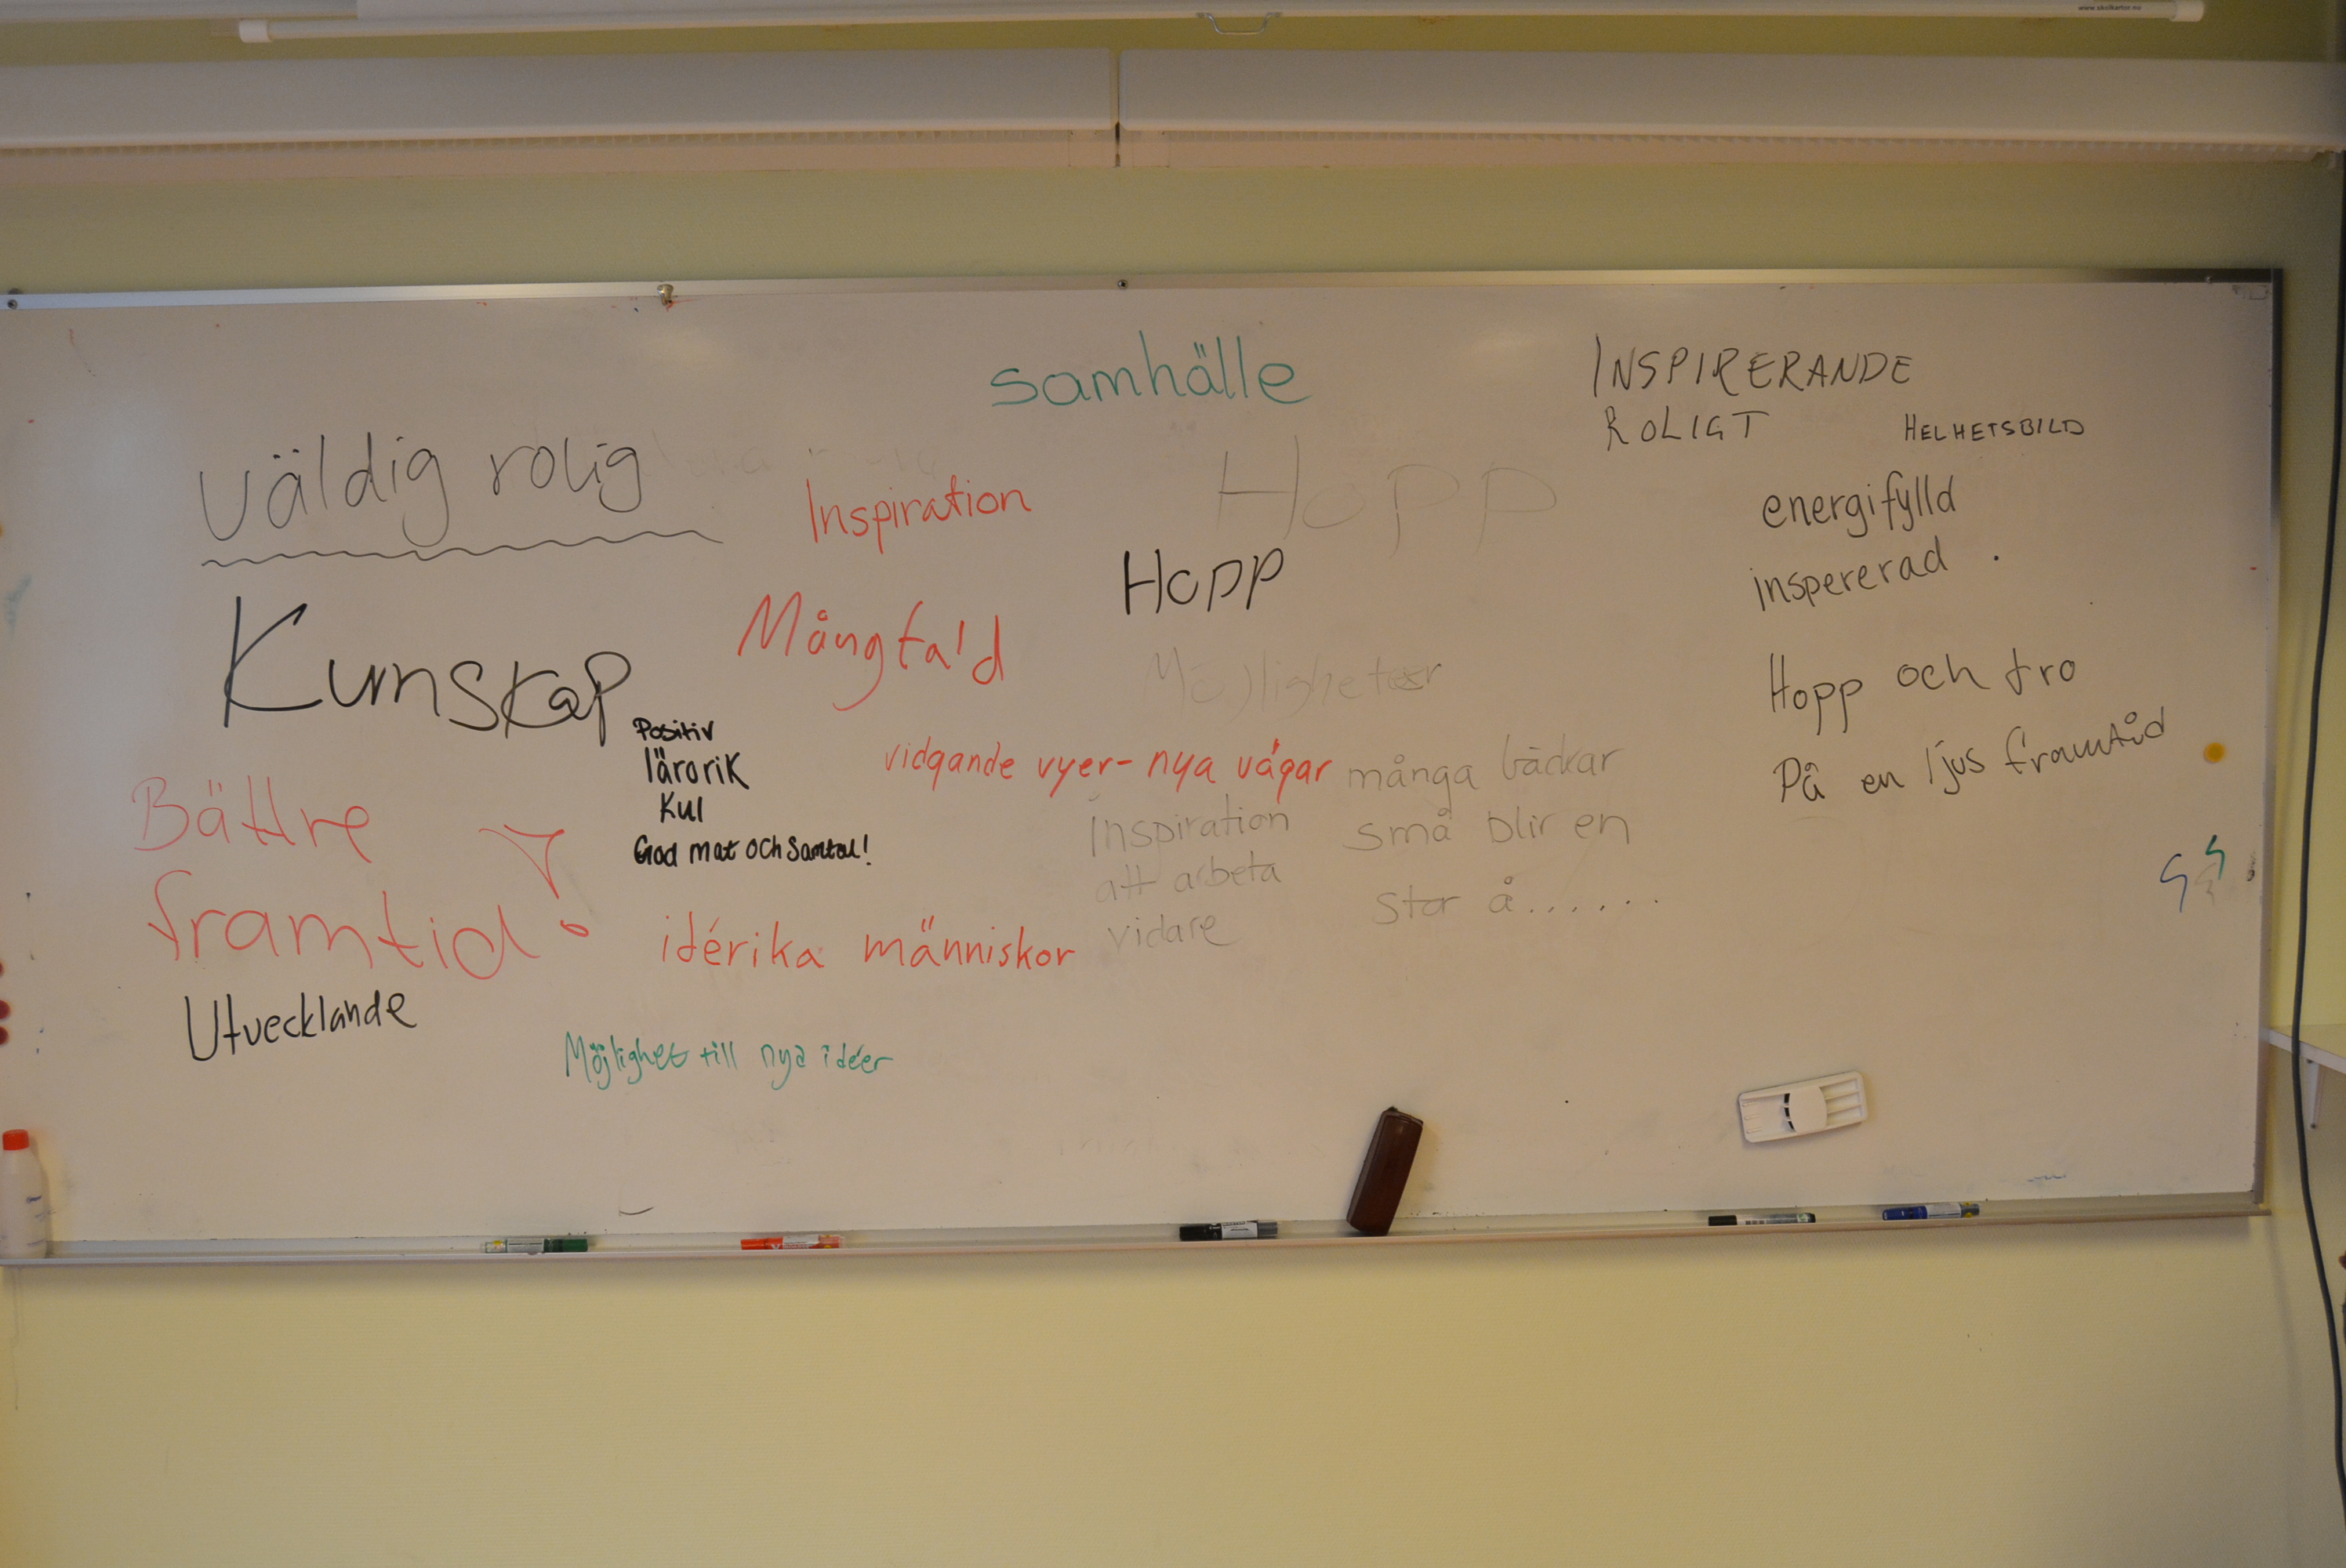 www.skolkartor.eu
samhälle
INSPIRERANDE
ROLIGT
HELHETSBILD
väldig rolig
Inspiration
Hopp
energifylld
Hopp
inspererad .
Kunskap
Mångfald
Möjligheter
Hopp och tro
På en ljus framtid
Positiv
lärorik
Kul
God mat och Samtal!
vidgande vyer- nya vägar
många bäckar
små blir en
stor å......
Inspiration
att arbeta
vidare
Bättre
framtid
idérika människor
Utvecklande
Möjlighet till nya idéer